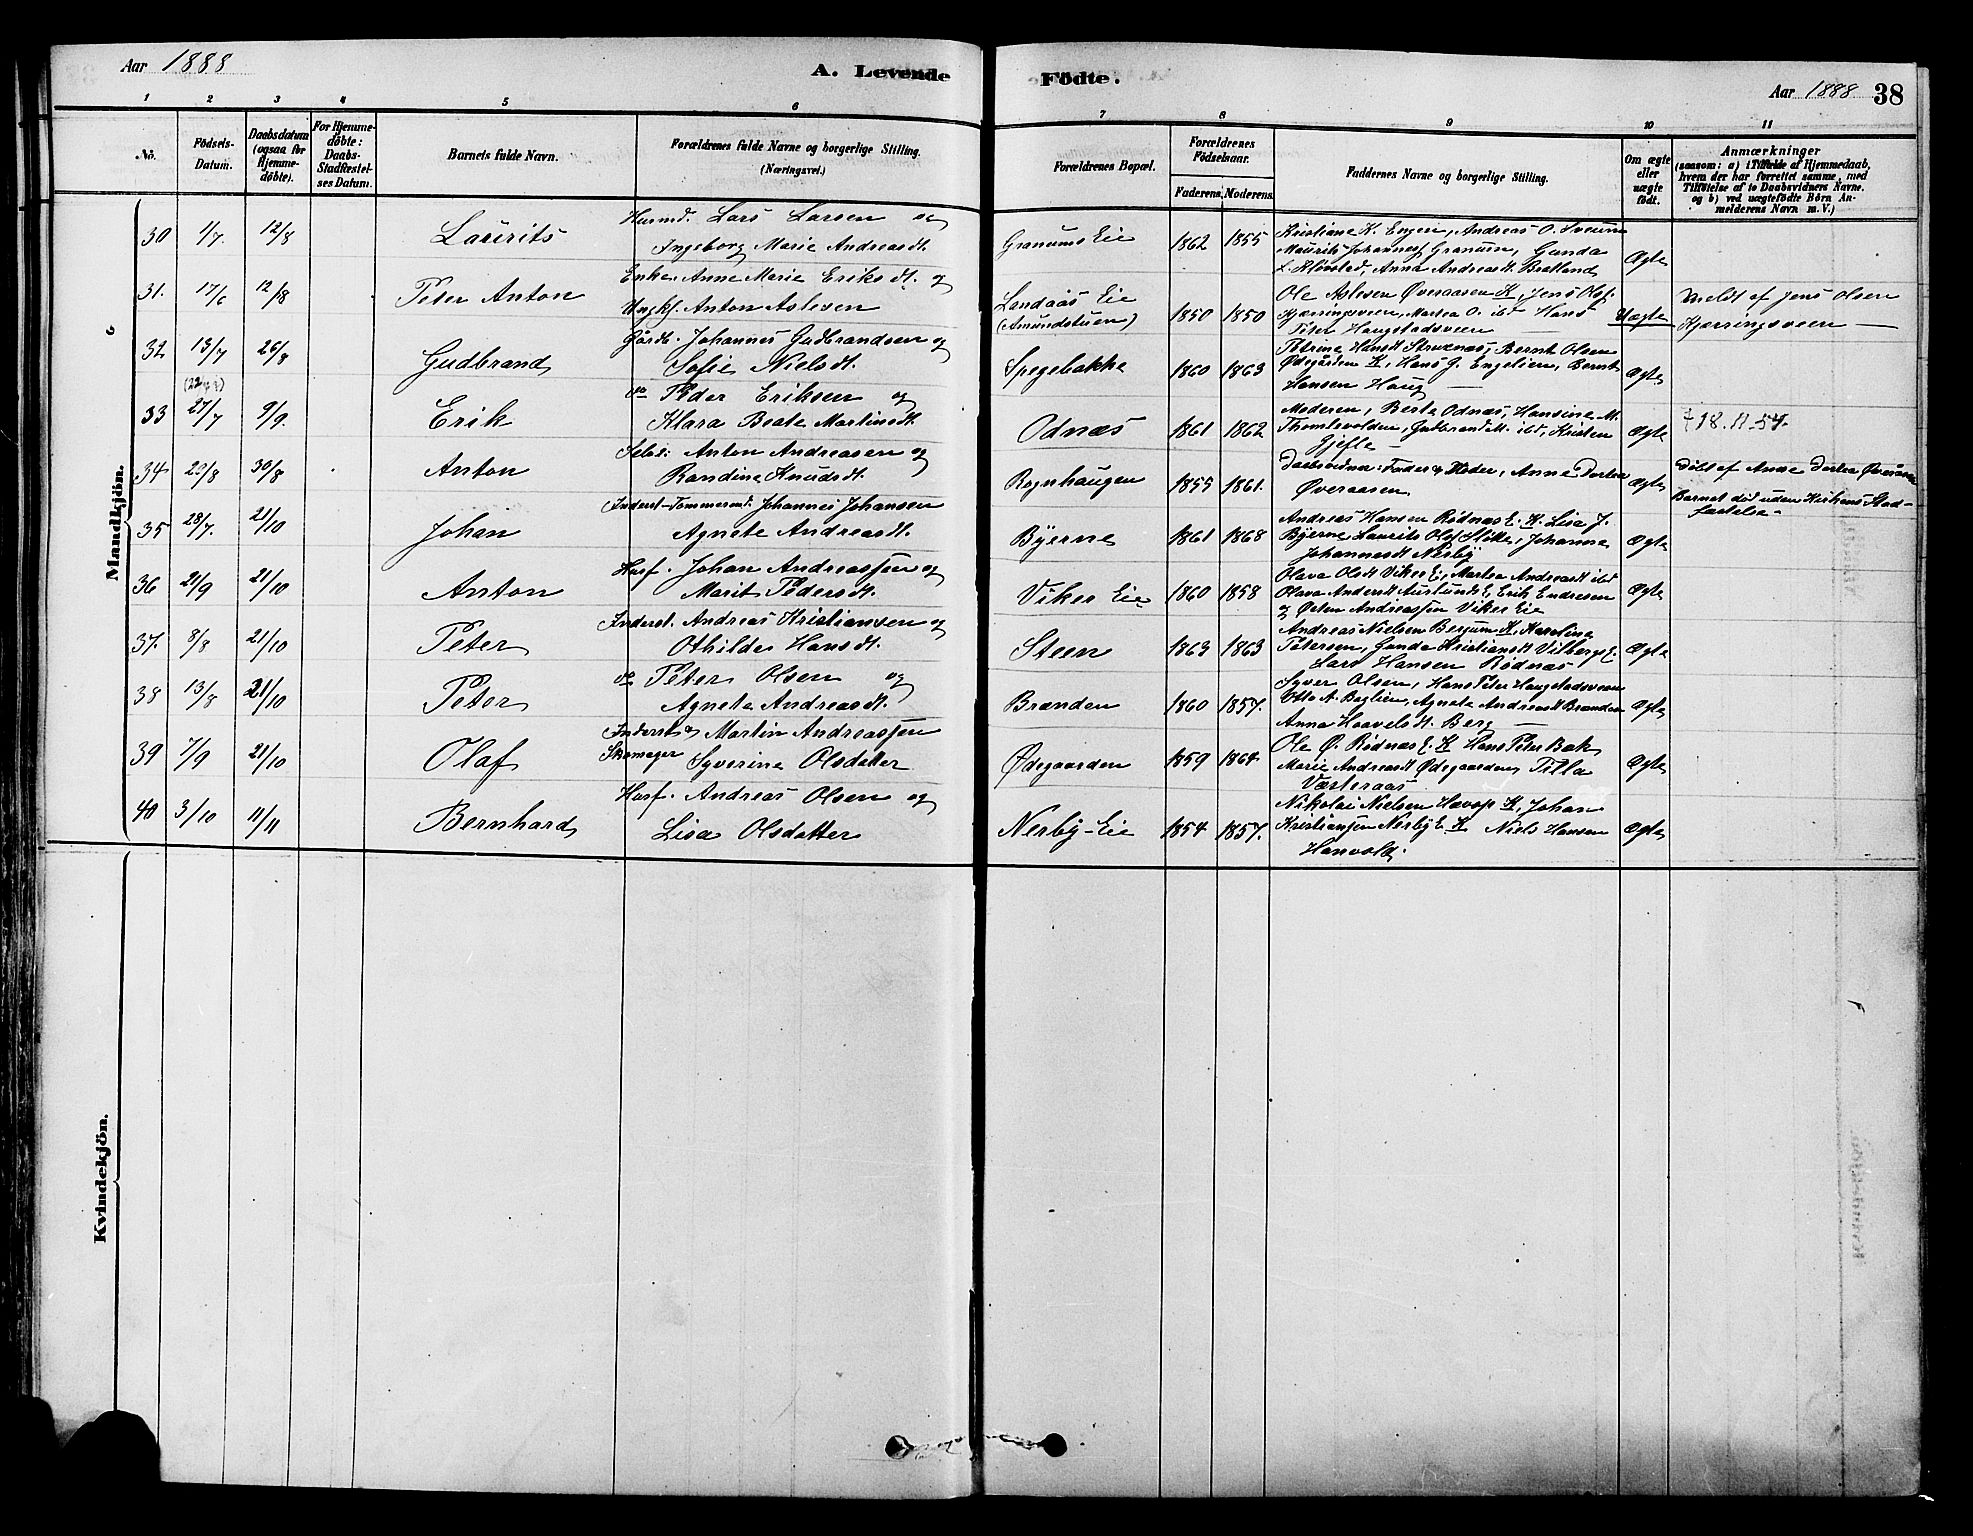 Aar 1888
A. Levende Födte.
Aar 1888 38
1 2 3 4 5 6 7 8 9 10 11
No.
Födsels-Datum.
Daabsdatum (ogsaa for Hjemme-döbte).
For Hjemme-döbte: Daabs-Stadfæstel-ses Datum.
Barnets fulde Navn.
Forældrenes fulde Navne og borgerlige Stilling.
(Næringsvei.)
Forældrenes Bopæl.
Forældrenes Födselsaar.
Faderens. Moderens.
Faddernes Navne og borgerlige Stilling.
Om ægte eller uægte födt.
Anmærkninger
(saasom: a) i Tilfælde af Hjemmedaab,
hvem der har forrettet samme, med
Tilföielse af to Daabsvidners Navne.
og b) ved uægtefödte Börn An-
melderens Navn m. V.)
Mandkjön.
30 1/7. 12/8 Laurits Husmd. Lars Larsen og
Ingeborg Marie Andreasdt.
Granums Eie 1862 1855
Kristiane K. Engen, Andreas O. Sveum
Maurits Johannesf Granum, Gunda
Anna Andreasdt. Bratland
Ægte
31. 17/6 12/8 Peter Anton
Enke Anne Marie Eriksdt. og
Ungkf. Anton Aslesen
Landaas Eie
(Amundstuen) 1850 1850
Ole Aslesen Øveraasen K, Jens Olsf.
Kjærringsveen, Martea O. ibd Hans
Peter Haugstadsveen
Uægte
Meldt af Jens Olsen
Kjærringsveen
32 13/7 26/8 Gudbrand
Gårdb. Johannes Gudbrandsen og
Sofie Nielsdt.
Spegebakke 1860 1863
Petrine Hansdt Strøznæs, Bernt Olsen
Ødegården K, Hans G. Engelien, Bernt
Hansen Haug
Ægte
33 27/7 9/9. Erik
do Peder Eriksen og
Klara Beate Martinsdt.
Odnæs 1861 1862
Moderen, Berte Odnæs, Hansine M.
Thomlevolden, Gudbrand M. ibd, Kristen
Gjefle
Ægte
† 18.11.54.
34 29/8 30/8 Anton
Selve: Anton Andreasen og
Randine Knudsdt.
Rognhaugen 1855 1861.
Daabsvidner: Fader og Moder, Anne Dortea
Øveraasen
Ægte
Døbt af Anne Dortea Øveraasen
Barnet död uden Kirkens Stad-
fæstelse
35 28/7. 21/10 Johan
Inderst-Tømmermd. Johannes Johansen
Agnete Andreasdt.
Byerne 1861 1868
Andreas Hansen Rødnæs E. K. Lisa J.
Byerne Laurits Olsf Johanne
Johannesdt Nerby
Ægte
36 21/9 21/10 Anton
Husf. Johan Andreassen og
Marit Pedersdt.
Viker Eie 1860 1858
Olava Olsdt Viker E, Martea Andreasdt ibd
Olava Andersdt Austlunds E, Erik Endresen
og Østen Andreassen Viker Eie
Ægte
37. 8/8 21/10 Peter
Inderst. Andreas Kristiansen og
Othilde Hansdt.
Steen 1863 1863
Andreas Nielsen Bergum K, Karoline
Petersen, Gunda Kristiansdt Vilbergs E.
Lars Hansen Rødnæs
Ægte
38 13/8 21/10 Peter
do Peter Olsen og
Agnete Andreasdt.
Brænden 1860 1857.
Syver Olsen, Hans Peter Haugstadsveen
Otto A. Baglien, Agnete Andreasdt Brænden
Anna Haavelsdt. Berg
Ægte
39 7/9 21/10 Olaf
Inderst & Martin Andreassen
Skomager Syverine Olsdatter
Ødegaarden 1859 1864
Ole Ø. Rødnæs E. K Hans Peter Bak
Marie Andreasdt Ødegaarden, Tilla
Vasteraas
Ægte
40 3/10 11/11 Bernhard
Husf. Andreas Olsen og
Lisa Olsdatter
Nerby-Eie 1854 1857.
Nikolai Nielsen Havop K, Johan
Kristiansen Nerby E. K Niels Hansen
Hanvold.
Ægte
Kvindekjön.